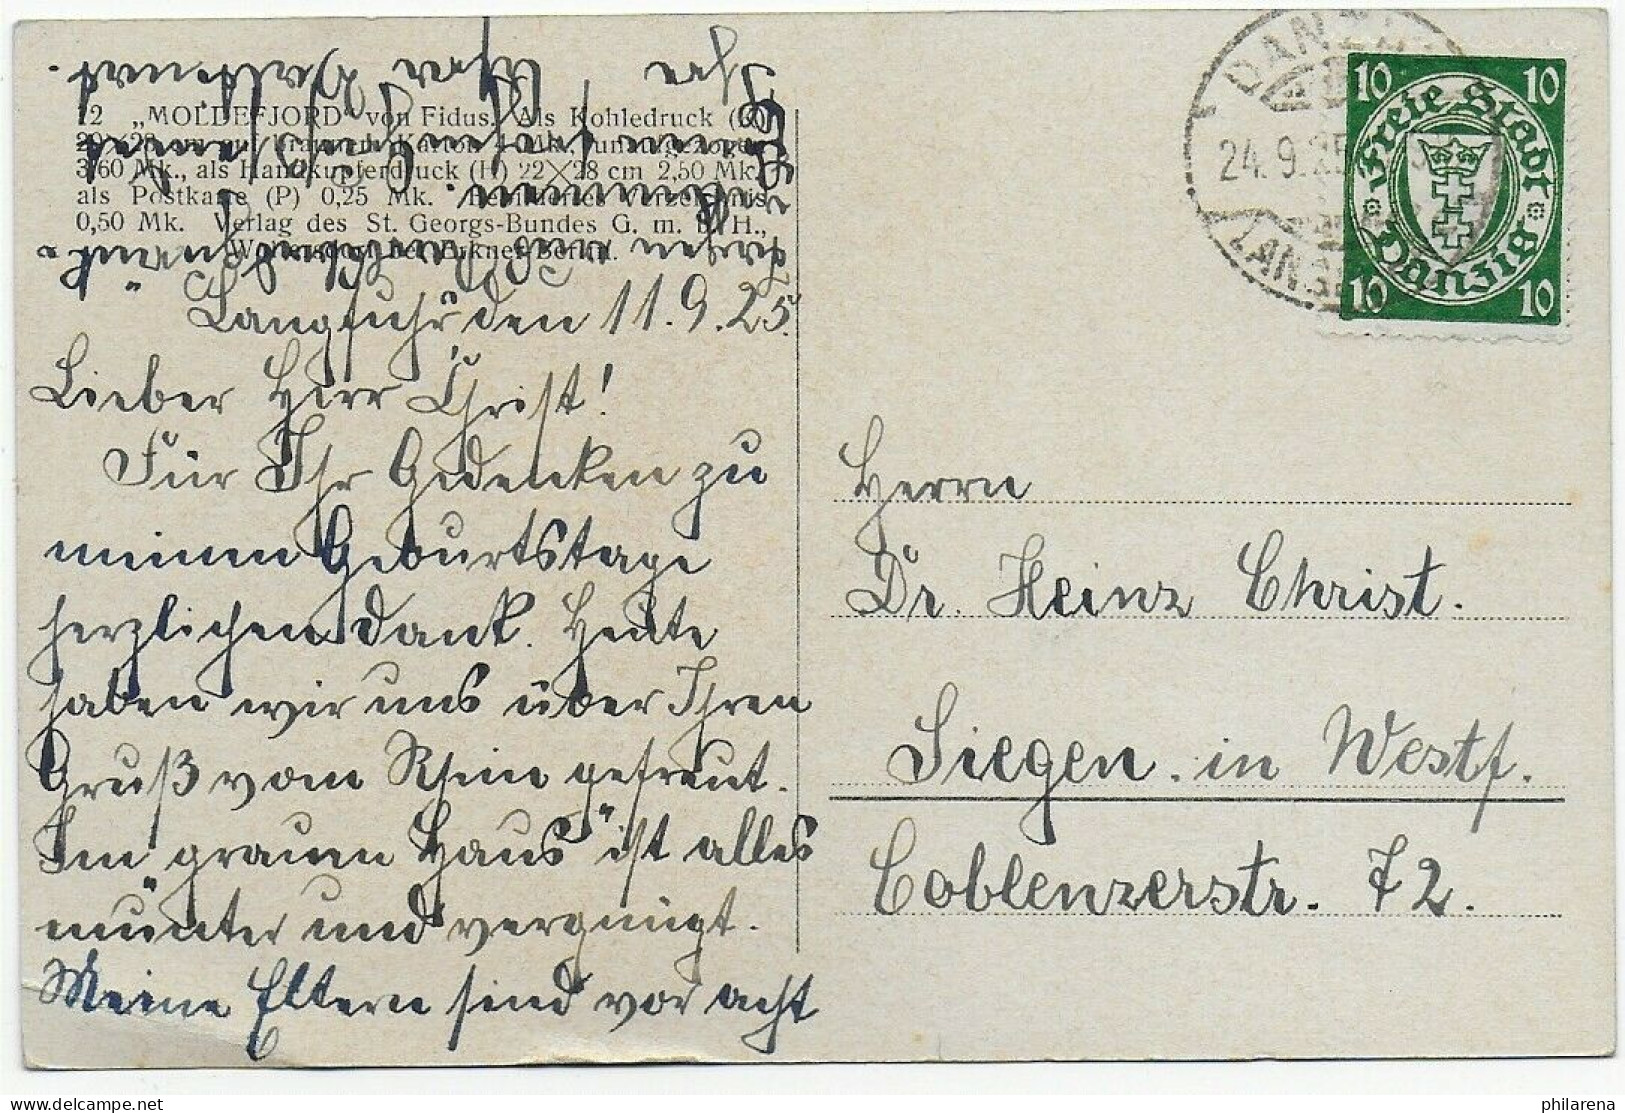 12 „MOLDEFJORD“ von Fidus. Als Kohledruck (K)
29×23 cm auf braunem Karton 4 Mk., unaufgezogen
3,60 Mk., als Handkupferdruck (H) 22×28 cm 2,50 Mk.,
als Postkarte (P) 0,25 Mk. Bebildertes Verzeichnis
0,50 Mk. Verlag des St. Georgs-Bundes G. m. b. H.,
Woltersdorf bei Erkner-Berlin.
Langfuhr den 11.9.25.
Lieber Herr Christ!
Für Ihr Gedenken zu
meinem Geburtstage
herzlichen Dank. Heute
haben wir uns über Ihren
Gruß vom Rhein gefreut.
Im „grauen Haus“ ist alles
munter und vergnügt.
Meine Eltern sind vor acht
Ihre
DANZIG
24.9.25
LANGFUHR
10 10
Freie Stadt
Danzig
10 10
Herrn
Dr. Heinz Christ.
Siegen. in Westf.
Coblenzerstr. 72.
philarena